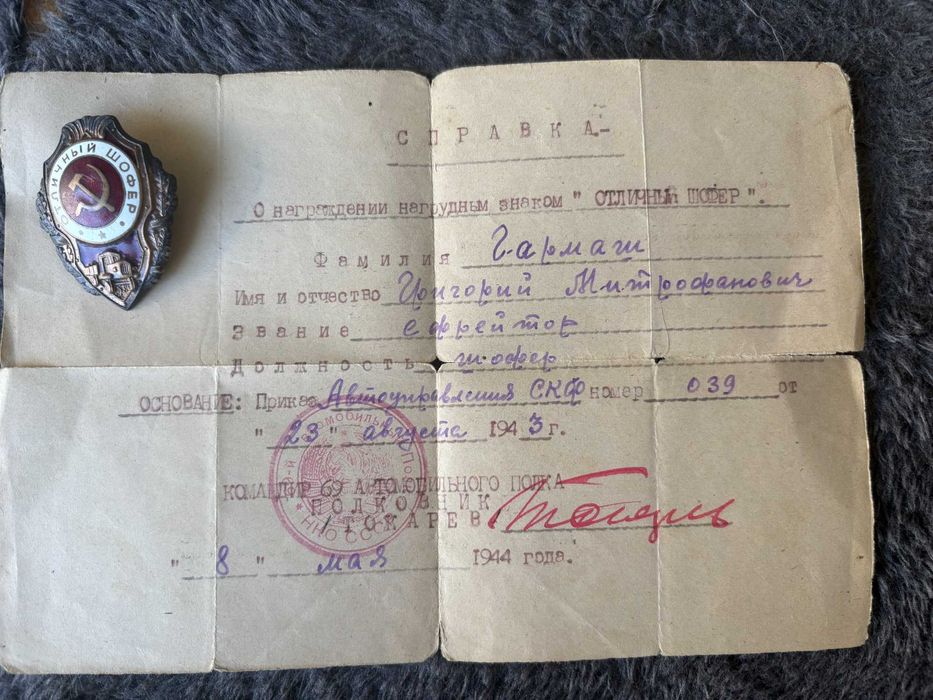 ОТЛИЧНЫЙ ШОФЕР
С П Р А В К А.-
О награждении нагрудным знаком " ОТЛИЧНЫЙ ШОФЕР ".
Фамилия Гармаш
Имя и отчество Григорий Митрофанович
Звание ефрейтор
Должность шофер
ОСНОВАНИЕ: Приказ Автоуправления СКФ номер 039 от
" 23 " августа 1943 г.
КОМАНДИР 69 АВТОМОБИЛЬНОГО ПОЛКА
ПОЛКОВНИК
/ТОКАРЕВ
" 8 " мая 1944 года.